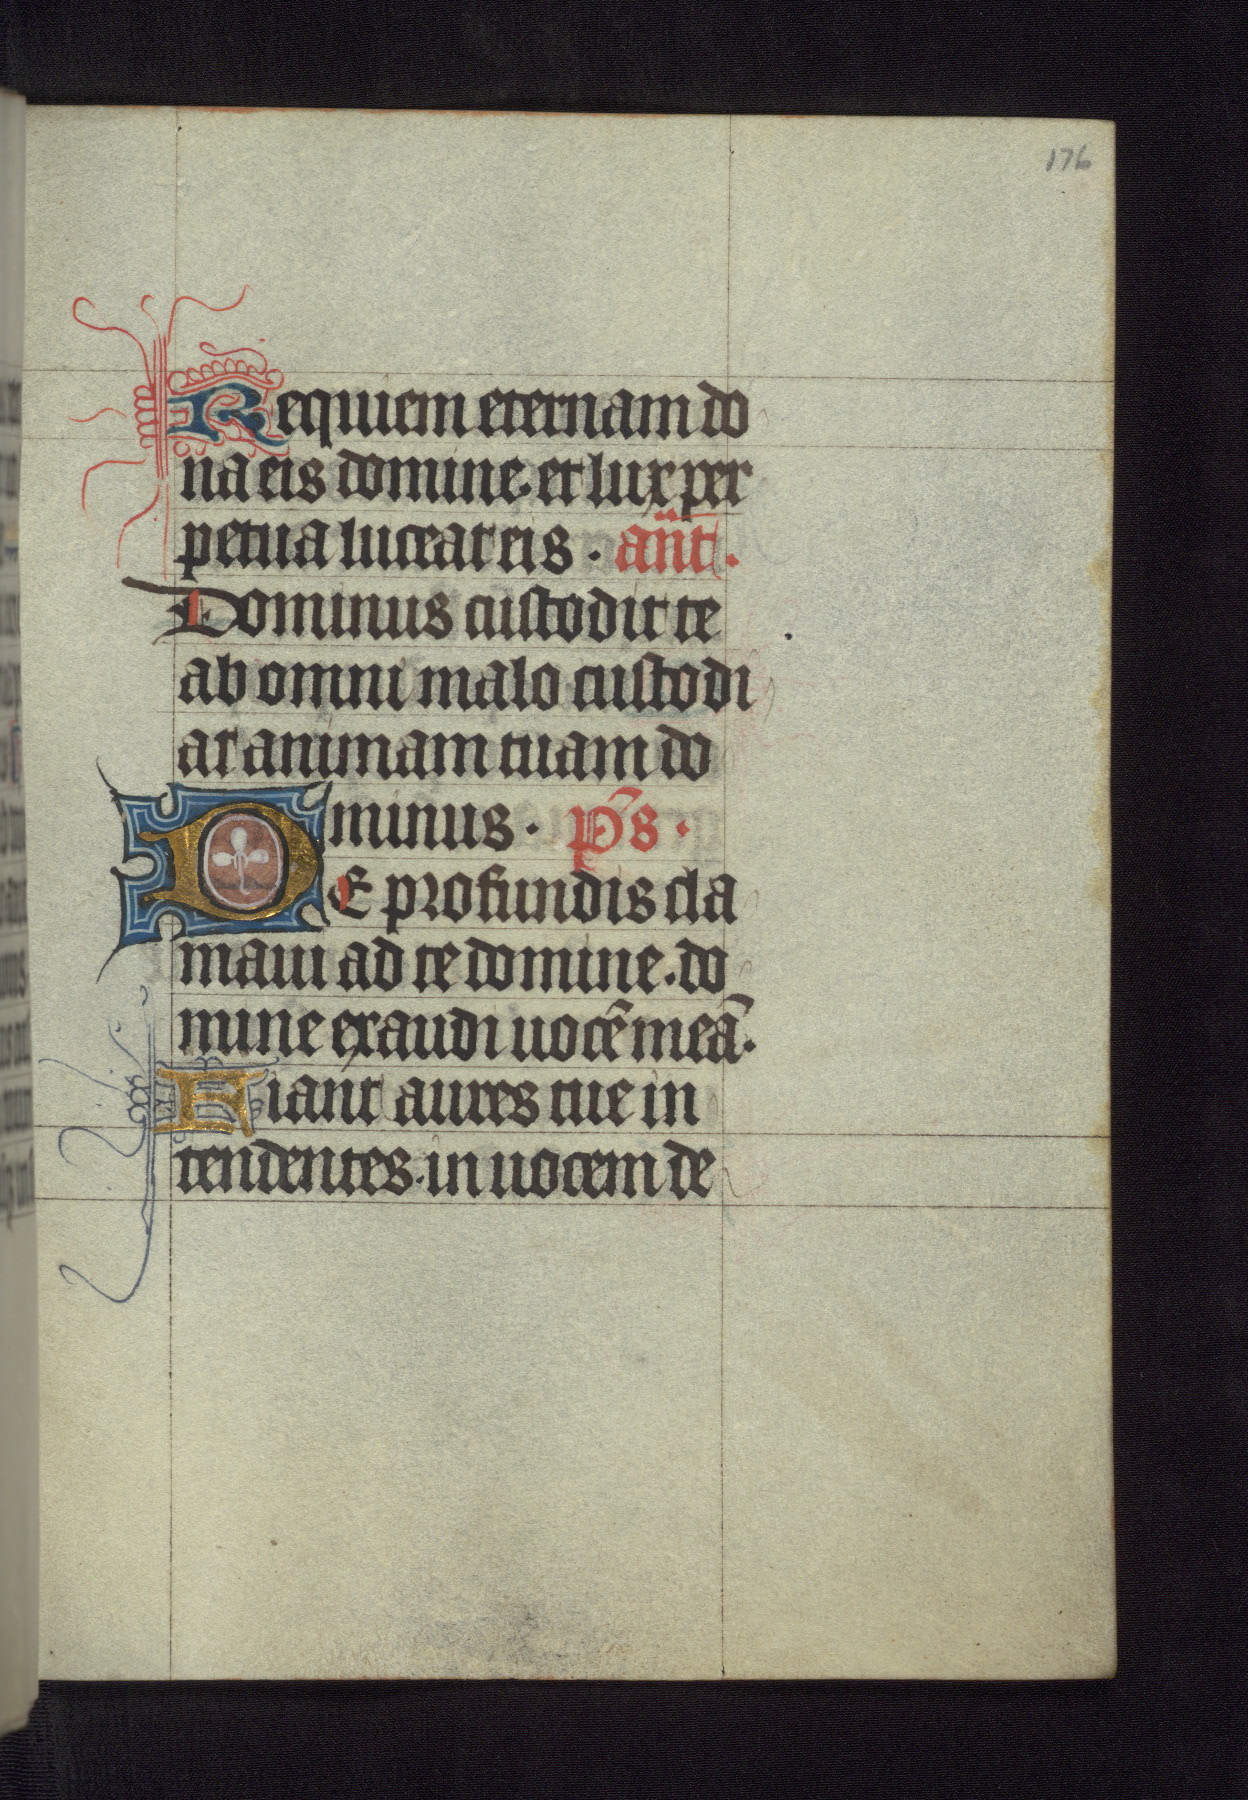 176
Requiem eternam do
na eis domine. et lux per
petua luceat eis . an̄t .
Dominus custodit te
ab omni malo custodi
at animam tuam do
minus . p̄s .
DE profundis cla
maui ad te domine. do
mine exaudi uocē meā.
Fiant aures tue in
tendentes. in uocem de